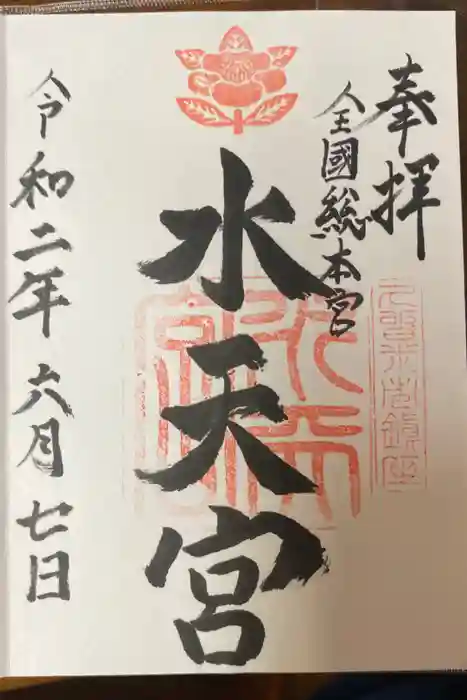 奉拝
全國総本宮
水天宮
令和二年六月七日